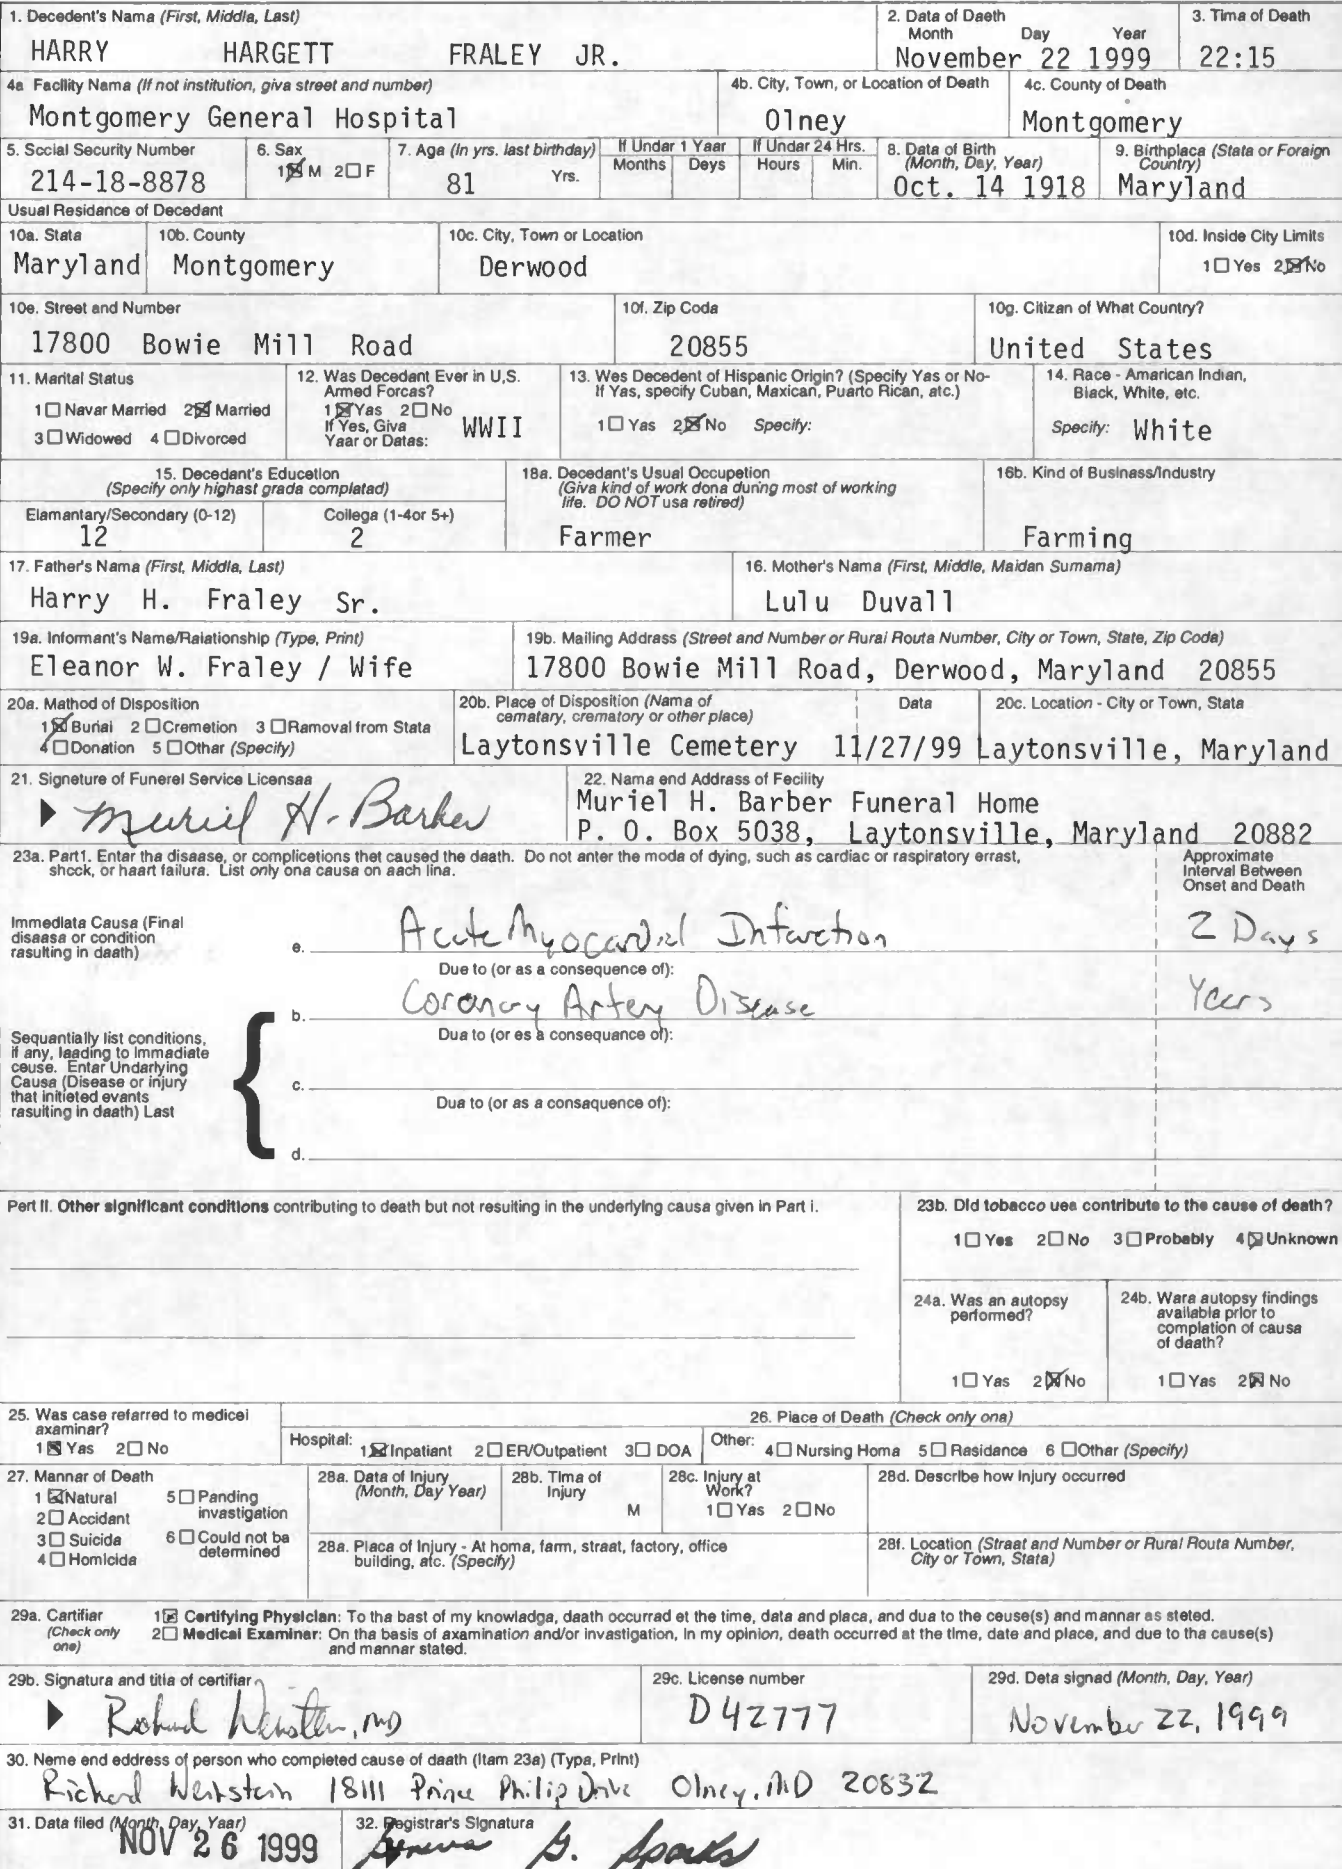 1. Decedent's Name (First, Middla, Last)
2. Data of Daeth
Month Day Year
3. Tima of Death
HARRY HARGETT FRALEY JR.
November 22 1999
22:15
4a Facility Name (If not institution, giva street and number)
4b. City, Town, or Location of Death
4c. County of Death
Montgomery General Hospital
Olney
Montgomery
5. Sccial Security Number
6. Sax
7. Age (In yrs. last birthday)
If Under 1 Yaar
If Under 24 Hrs.
8. Data of Birth
(Month, Day, Year)
9. Birthplaca (Stata or Foraign
Country)
1☒M 2☐F
Yrs.
Months Deys
Hours Min.
214-18-8878
81
Oct. 14 1918
Maryland
Usual Residance of Decedant
10a. Stata
10b. County
10c. City, Town or Location
10d. Inside City Limits
Maryland
Montgomery
Derwood
1☐Yes 2☒No
10e. Street and Number
10f. Zip Coda
10g. Citizan of What Country?
17800 Bowie Mill Road
20855
United States
11. Marital Status
1☐Navar Married 2☒Married
3☐Widowed 4☐Divorced
12. Was Decedant Ever in U,S.
Armed Forcas?
1☒Yas 2☐No
If Yes, Giva
Yaar or Datas:
WWII
13. Wes Decedent of Hispanic Origin? (Specify Yas or No-
If Yas, specify Cuban, Maxican, Puarto Rican, atc.)
1☐Yas 2☒No Specify:
14. Race - Amarican Indian,
Biack, White, etc.
Specify: White
15. Decedant's Educetion
(Specify only highast grada complatad)
Elamantary/Secondary (0-12)
Collega (1-4or 5+)
12
2
18a. Decedant's Usual Occupetion
(Giva kind of work dona during most of working
life. DO NOT usa retired)
Farmer
16b. Kind of Businass/Industry
Farming
17. Father's Nama (First, Middla, Last)
16. Mother's Nama (First, Middle, Maidan Sumama)
Harry H. Fraley Sr.
Lulu Duvall
19a. Informant's Name/Ralationship (Type, Print)
19b. Mailing Address (Street and Number or Rurai Routa Number, City or Town, State, Zip Coda)
Eleanor W. Fraley / Wife
17800 Bowie Mill Road, Derwood, Maryland 20855
20a. Mathod of Disposition
1☒Burial 2☐Cremetion 3☐Ramoval from Stata
4☐Donation 5☐Othar (Specify)
20b. Place of Disposition (Nama of
cematary, crematory or other place)
Data
20c. Location - City or Town, Stata
Laytonsville Cemetery 11/27/99
Laytonsville, Maryland
21. Signeture of Funerel Service Licensaa
Muriel H. Barber
22. Nama end Addrass of Fecility
Muriel H. Barber Funeral Home
P. O. Box 5038, Laytonsville, Maryland 20882
23a. Part1. Entar tha disaase, or complicetions thet caused the daath. Do not anter the moda of dying, such as cardiac or raspiratory errast,
shcck, or haart failura. List only ona causa on aach lina.
Approximate
Interval Between
Onset and Death
Immediata Causa (Final
disaasa or condition
rasulting in daath)
e. Acute Myocardial Infarction
2 Days
Due to (or as a consequence of):
b. Coronary Artery Disease
Years
Dua to (or es a consequance of):
Sequantially list conditions,
if any, laading to Immadiate
ceuse. Entar Undarlying
Causa (Disease or injury
that initieted evants
rasulting in daath) Last
c.
Dua to (or as a consaquence of):
d.
Pert II. Other significant conditions contributing to death but not resulting in the underlying causa given in Part i.
23b. Did tobacco uea contribute to the cause of death?
1☐Yes 2☐No 3☐Probably 4☒Unknown
24a. Was an autopsy
performed?
1☐Yas 2☒No
24b. Wara autopsy findings
availabla prior to
complation of causa
of daath?
1☐Yas 2☒No
25. Was casa refarred to medicei
axaminar?
1☒Yas 2☐No
26. Piace of Death (Check only ona)
Hospital: 1☒Inpatiant 2☐ER/Outpatient 3☐DOA
Other: 4☐Nursing Homa 5☐Rasidance 6☐Othar (Specify)
27. Mannar of Death
1☒Natural
2☐Accidant
3☐Suicida
4☐Homicida
5☐Panding
invastigation
6☐Could not ba
determined
28a. Data of Injury
(Month, Day Year)
28b. Tlma of
Injury
M
28c. Injury at
Work?
1☐Yas 2☐No
28d. Describe how injury occurred
28a. Placa of Injury - At homa, farm, straat, factory, office
building, atc. (Specify)
28f. Location (Straat and Number or Rural Routa Number,
City or Town, Stata)
29a. Cartifiar
(Check only
one)
1☒Certifying Physician: To tha bast of my knowladga, daath occurrad et the time, data and placa, and dua to the ceuse(s) and mannar as steted.
2☐Medical Examinar: On tha basis of axamination and/or invastigation, in my opinion, death occurred at the time, date and place, and due to tha cause(s)
and mannar stated.
29b. Signatura and titia of cartifiar
Richard Weinstein, MD
29c. License number
D42777
29d. Deta signad (Month, Day, Year)
November 22, 1999
30. Neme end eddress of person who completed cause of daath (Itam 23a) (Typa, Print)
Richard Weinstein 18111 Prince Philip Drive Olney, MD 20832
31. Data filed (Month, Day, Yaar)
NOV 26 1999
32. Registrar's Signatura
Geneva G. Sparks